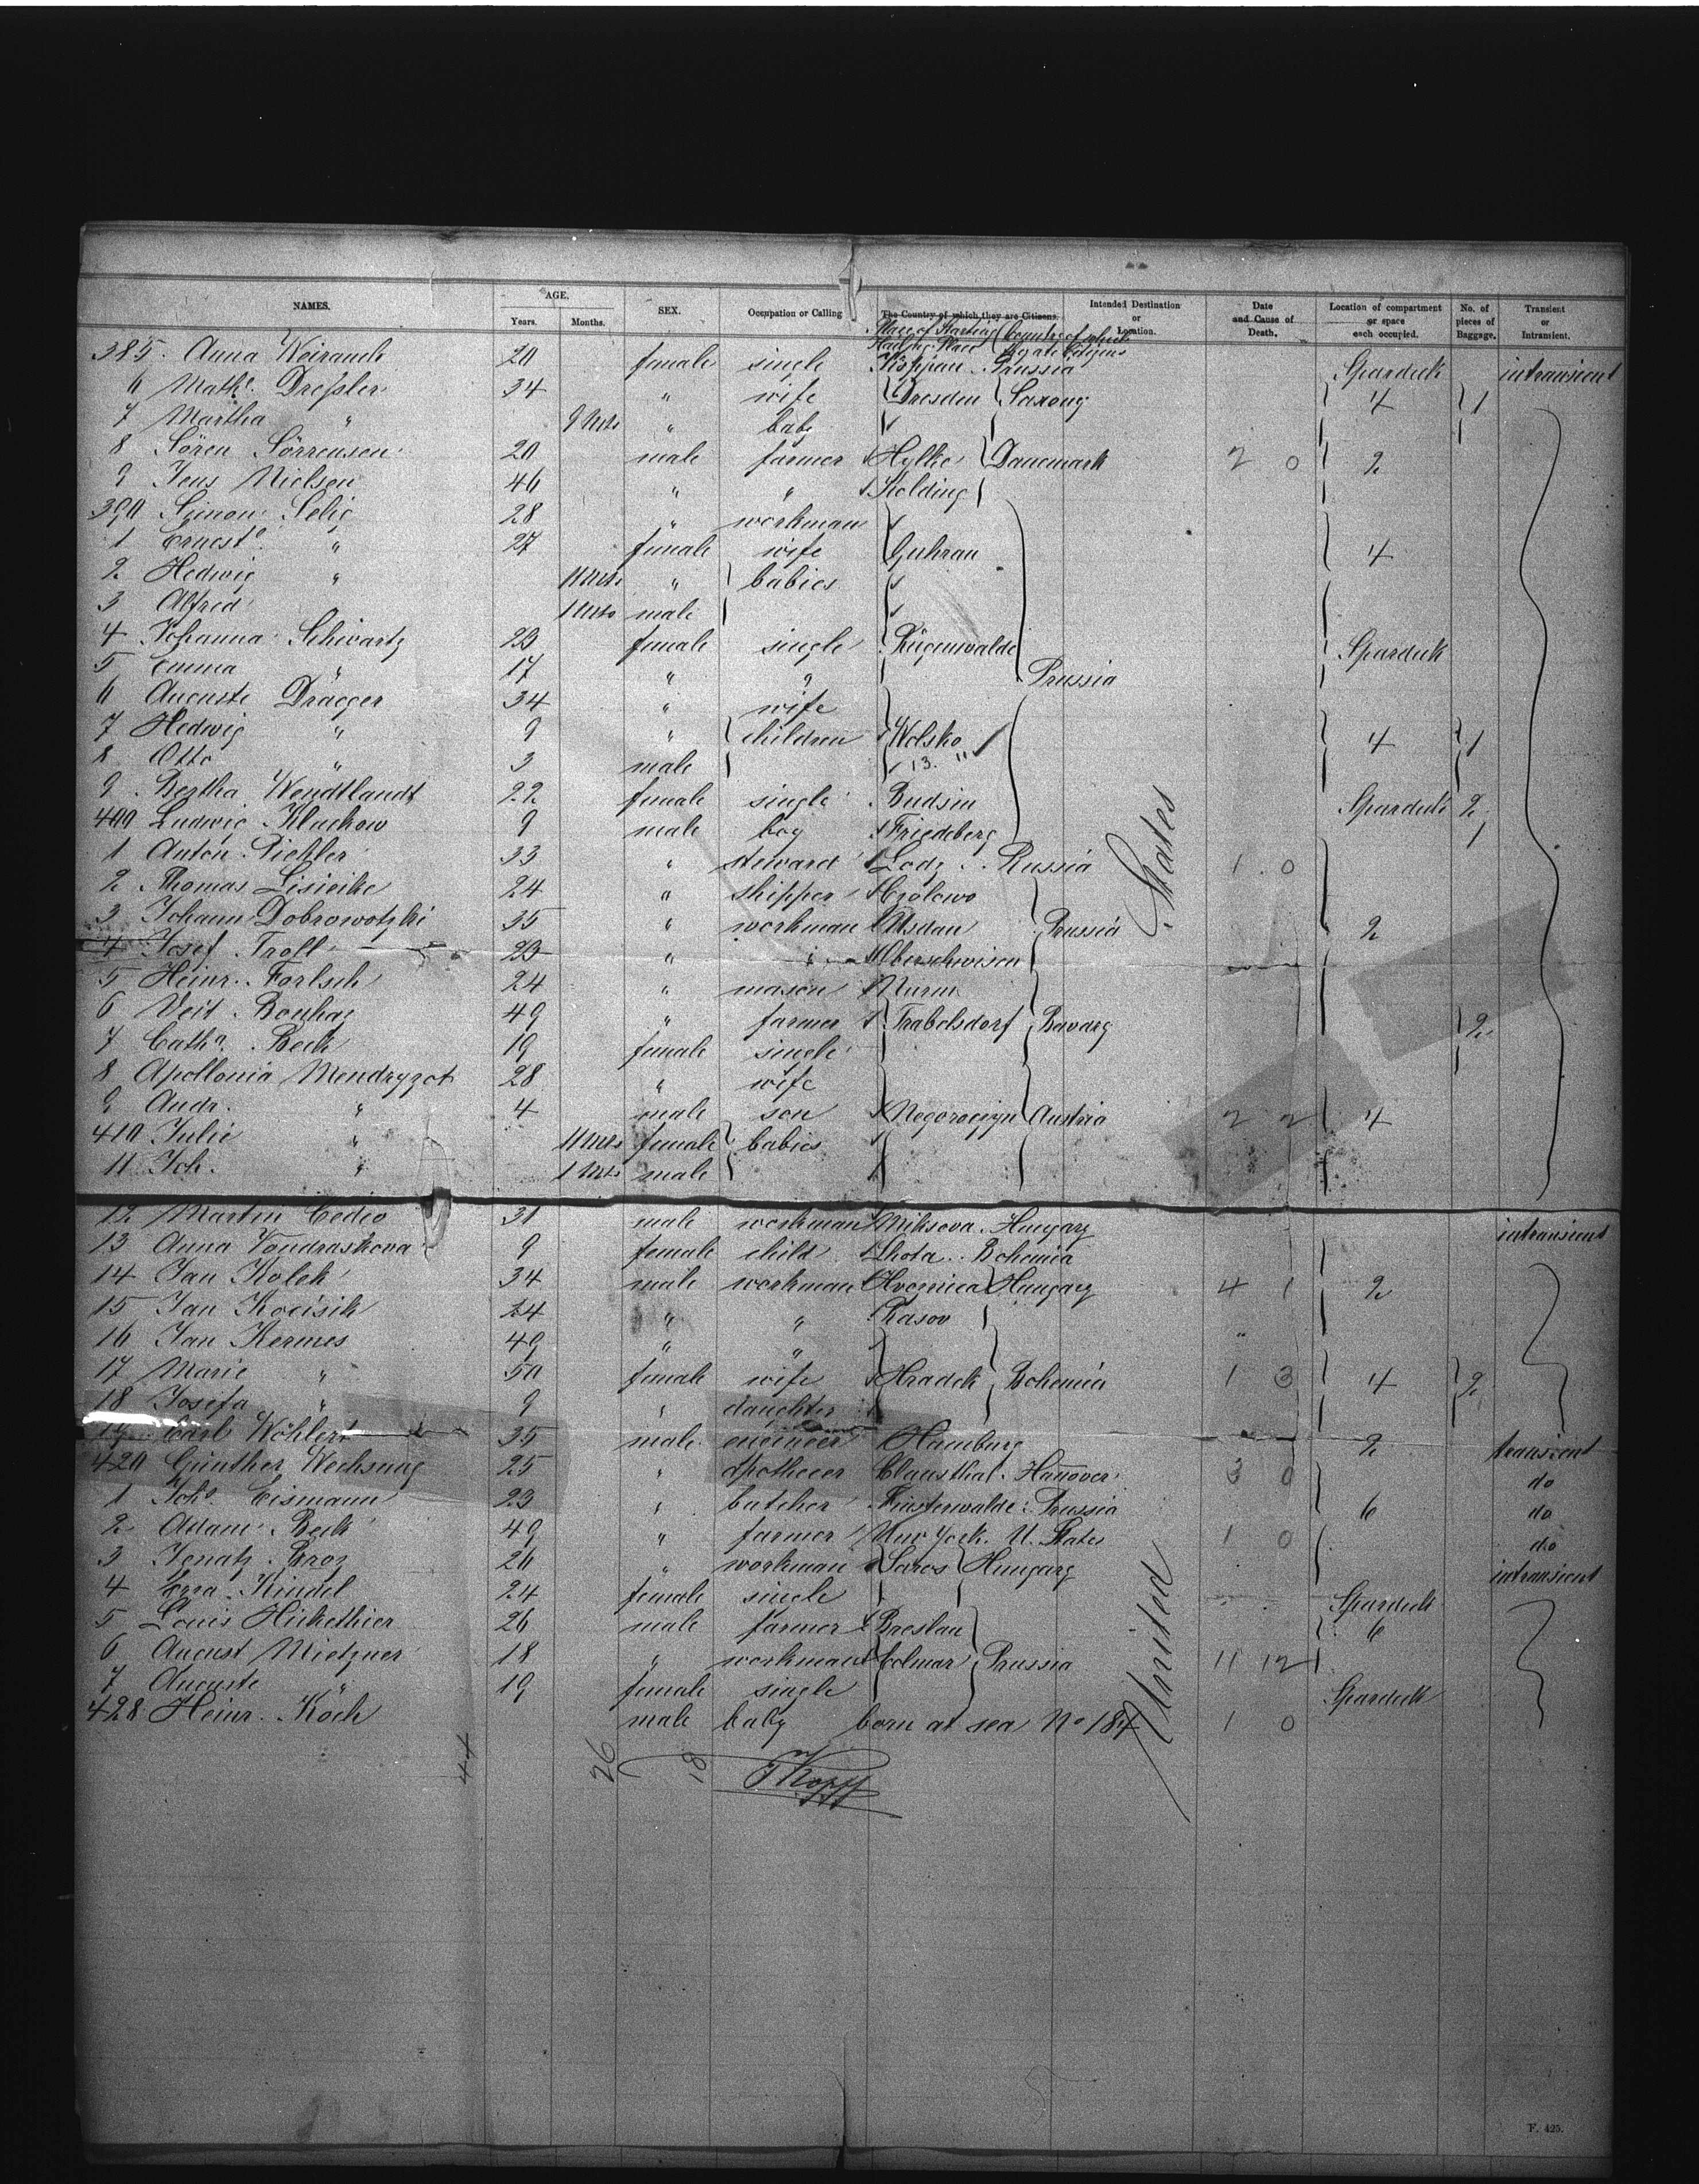 NAMES. AGE. SEX. Occupation or Calling The Country of which they are Citizens. Intended Destination or Location. Date and Cause of Death. Location of compartment or space each occupied. No. of pieces of Baggage. Transient or Intransient.
Years. Months.
Place of Starting Country of which
385. Anna Weirauch 20 female single Prussia Spardeck intransient
6 Mathe. Dreßler 34 " wife Dresden Saxony 4 1
7 Martha " 9 Mts " baby
8 Sören Sörrensen 20 male farmer Hylke Danemark 2 0 2
9 Jens Nielsen 46 " " Kolding
390 Simon Selig 28 " workman
1 Erneste " 27 female wife Guhrau 4
2 Hedwig " 11 Mts " babies
3 Alfred 1 Mts male
4 Johanna Schwartz 23 female single Rügenwalde Spardeck
5 Emma " 17 " " Prussia
6 Auguste Draeger 34 " wife
7 Hedwig " 9 " children Wolsko 4 1
8 Otto " 3 male 13. "
9 Bertha Wendtlandt 22 female single Budsin Spardeck 2
400 Ludwig Kluckow 9 male boy Friedeberg 1
1 Anton Pichler 33 " steward Lodz Russia 1 0
2 Thomas 24 " shipper
3 Johann Dobrowotzki 35 " workman Usdau Prussia 2
4 Josef Troll 23 " "
5 Heinr. Fortsch 24 " mason
6 Veit 49 " farmer Trabelsdorf Bavarg 2
7 Catha. Beck 19 female single
8 Apollonia Mendryzot 28 " wife
9 Andr. " 4 male son Austria 2 2 4
410 Julie " 11 Mts female babies
11 Joh. " 1 Mts male
12 Martin Cedio 31 male workman Miksova Hungary intransient
13 Anna Vondraskova 9 female child Lhota Bohemia
14 Jan Kolek 34 male workman Hungary 4 1 2
15 Jan Kocisik 24 " " Rasov
16 Jan Kermes 49 " "
17 Marie " 50 female wife Hradek Bohemia 1 3 4 2
18 Josefa " 9 " daughter
19 Carl Wöhlert 35 male engineer Hamburg 2 transient
420 Günther Wechsung 25 " apothecer Clausthal Hannover 3 0 do
1 Johs. Eismann 23 " butcher Finsterwalde Prussia 6 do
2 Adam Beck 49 " farmer New York U. States 1 0 do
3 Ignatz Broz 26 " workman Saros Hungary intransient
4 Kindel 24 female single Spardeck
5 Louis Hickethier 26 male farmer Breslau 6
6 August Mietzner 18 " workman Colmar Prussia 11 12
7 Auguste " 19 female single Spardeck
428 Heinr. Koch male baby born at sea No 184 1 0
United States
44 26 18
Kopff
F. 425.